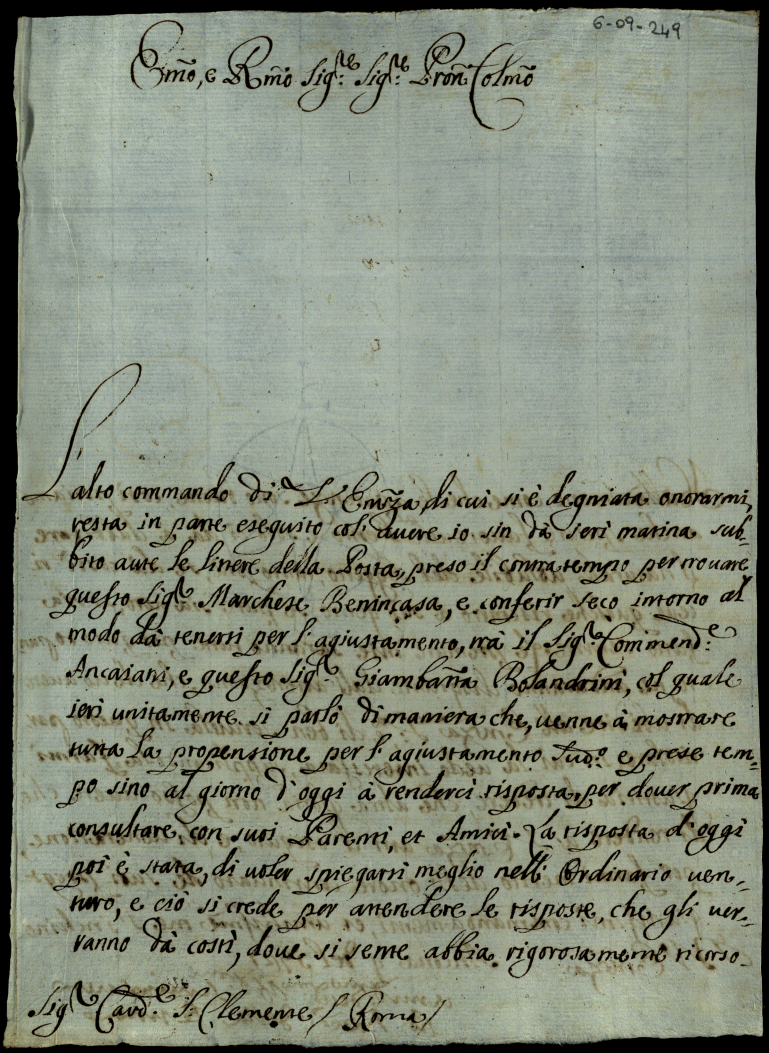 6-09-249
Em̃o, e Rm̃o Sig.re Sig.re Pron̄ Colm̃o
L'alto commando di V. Em̃za, di cui si è degniata onorarmi,
resta in parte eseguito col' avere io sin da ieri matina sub-
bito aute le littere della Posta, preso il contratempo per trovare
questo Sig.re Marchese Benincasa, e conferir seco intorno al
modo dà tenersi per l'agiustamento, trà il Sig.re Commend.e
Ancaiani, e questo Sig.re Giambatt̃a Bolandrini, col quale
ieri unitamente si parlò di maniera che, venne à mostrare
tutta la propensione per l'agiustamento sud.o e prese tem-
po sino al giorno d'oggi à renderci risposta, per dover prima
consultare con suoi Parenti, et Amici. La risposta d'oggi
poi è stata, di voler spiegarsi meglio nell' Ordinario ven-
turo, e ciò si crede per attendere le risposte, che gli ver-
ranno dà costì, dove si sente abbia rigorosamente ricorso
Sig.re Card.e S. Clemente / Roma /